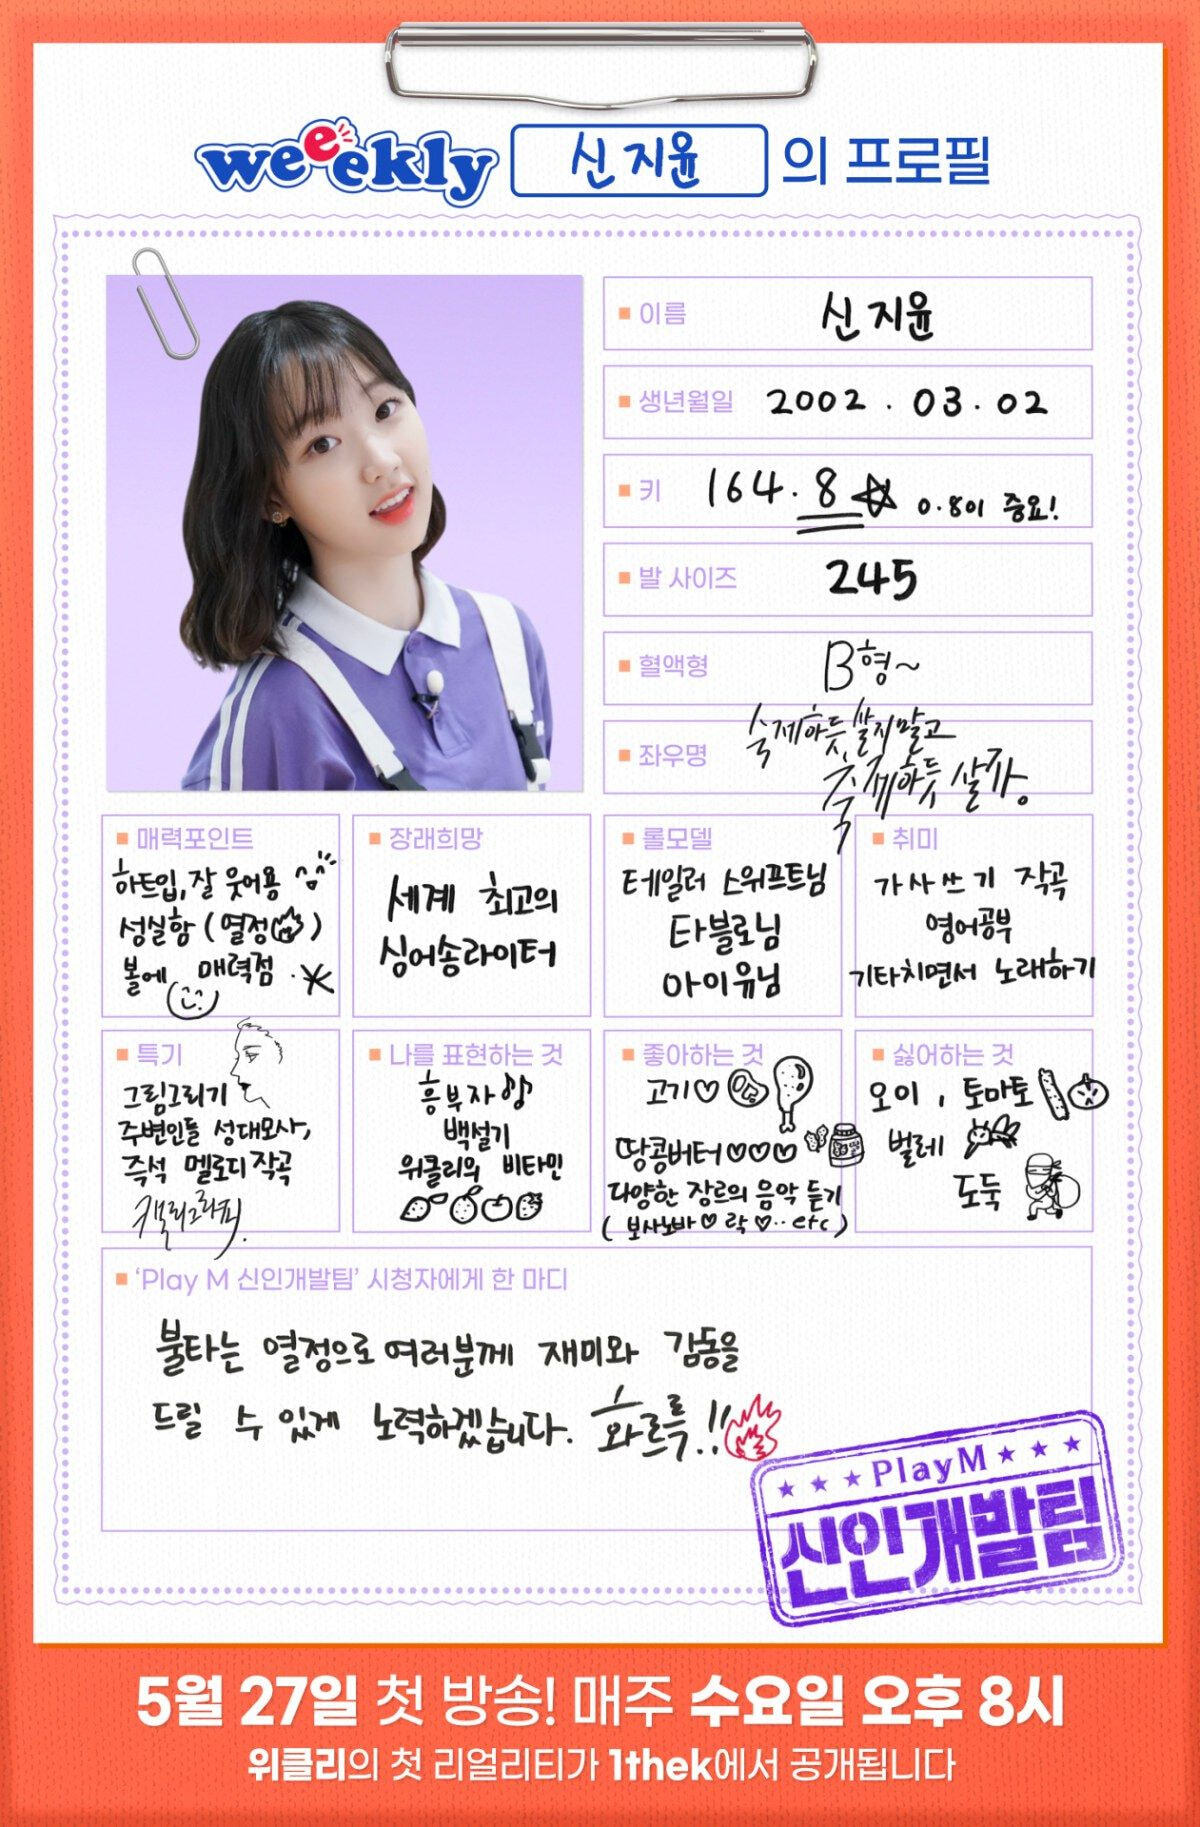 weeekly 신지윤 의 프로필
이름 신지윤
생년월일 2002.03.02
키 164.8 0.8이 중요!
발 사이즈 245
혈액형 B형~
좌우명 숙제하듯 살지말고
축제하듯 살자.
매력포인트
하트입, 잘 웃어용
성실함 (열정)
볼에 매력점
장래희망
세계 최고의
싱어송라이터
롤모델
테일러 스위프트님
타블로님
아이유님
취미
가사쓰기 작곡
영어공부
기타치면서 노래하기
특기
그림그리기
주변인들 성대모사,
즉석 멜로디 작곡
캘리그라피.
나를 표현하는 것
흥부자
백설기
위클리의 비타민
좋아하는 것
고기♡
땅콩버터♡♡♡
다양한 장르의 음악 듣기
(보사노바♡ 락♡..etc)
싫어하는 것
오이, 토마토
벌레
도둑
‘Play M 신인개발팀’ 시청자에게 한 마디
불타는 열정으로 여러분께 재미와 감동을
드릴 수 있게 노력하겠습니다. 화르륵!!
PlayM
신인개발팀
5월 27일 첫 방송! 매주 수요일 오후 8시
위클리의 첫 리얼리티가 1thek에서 공개됩니다